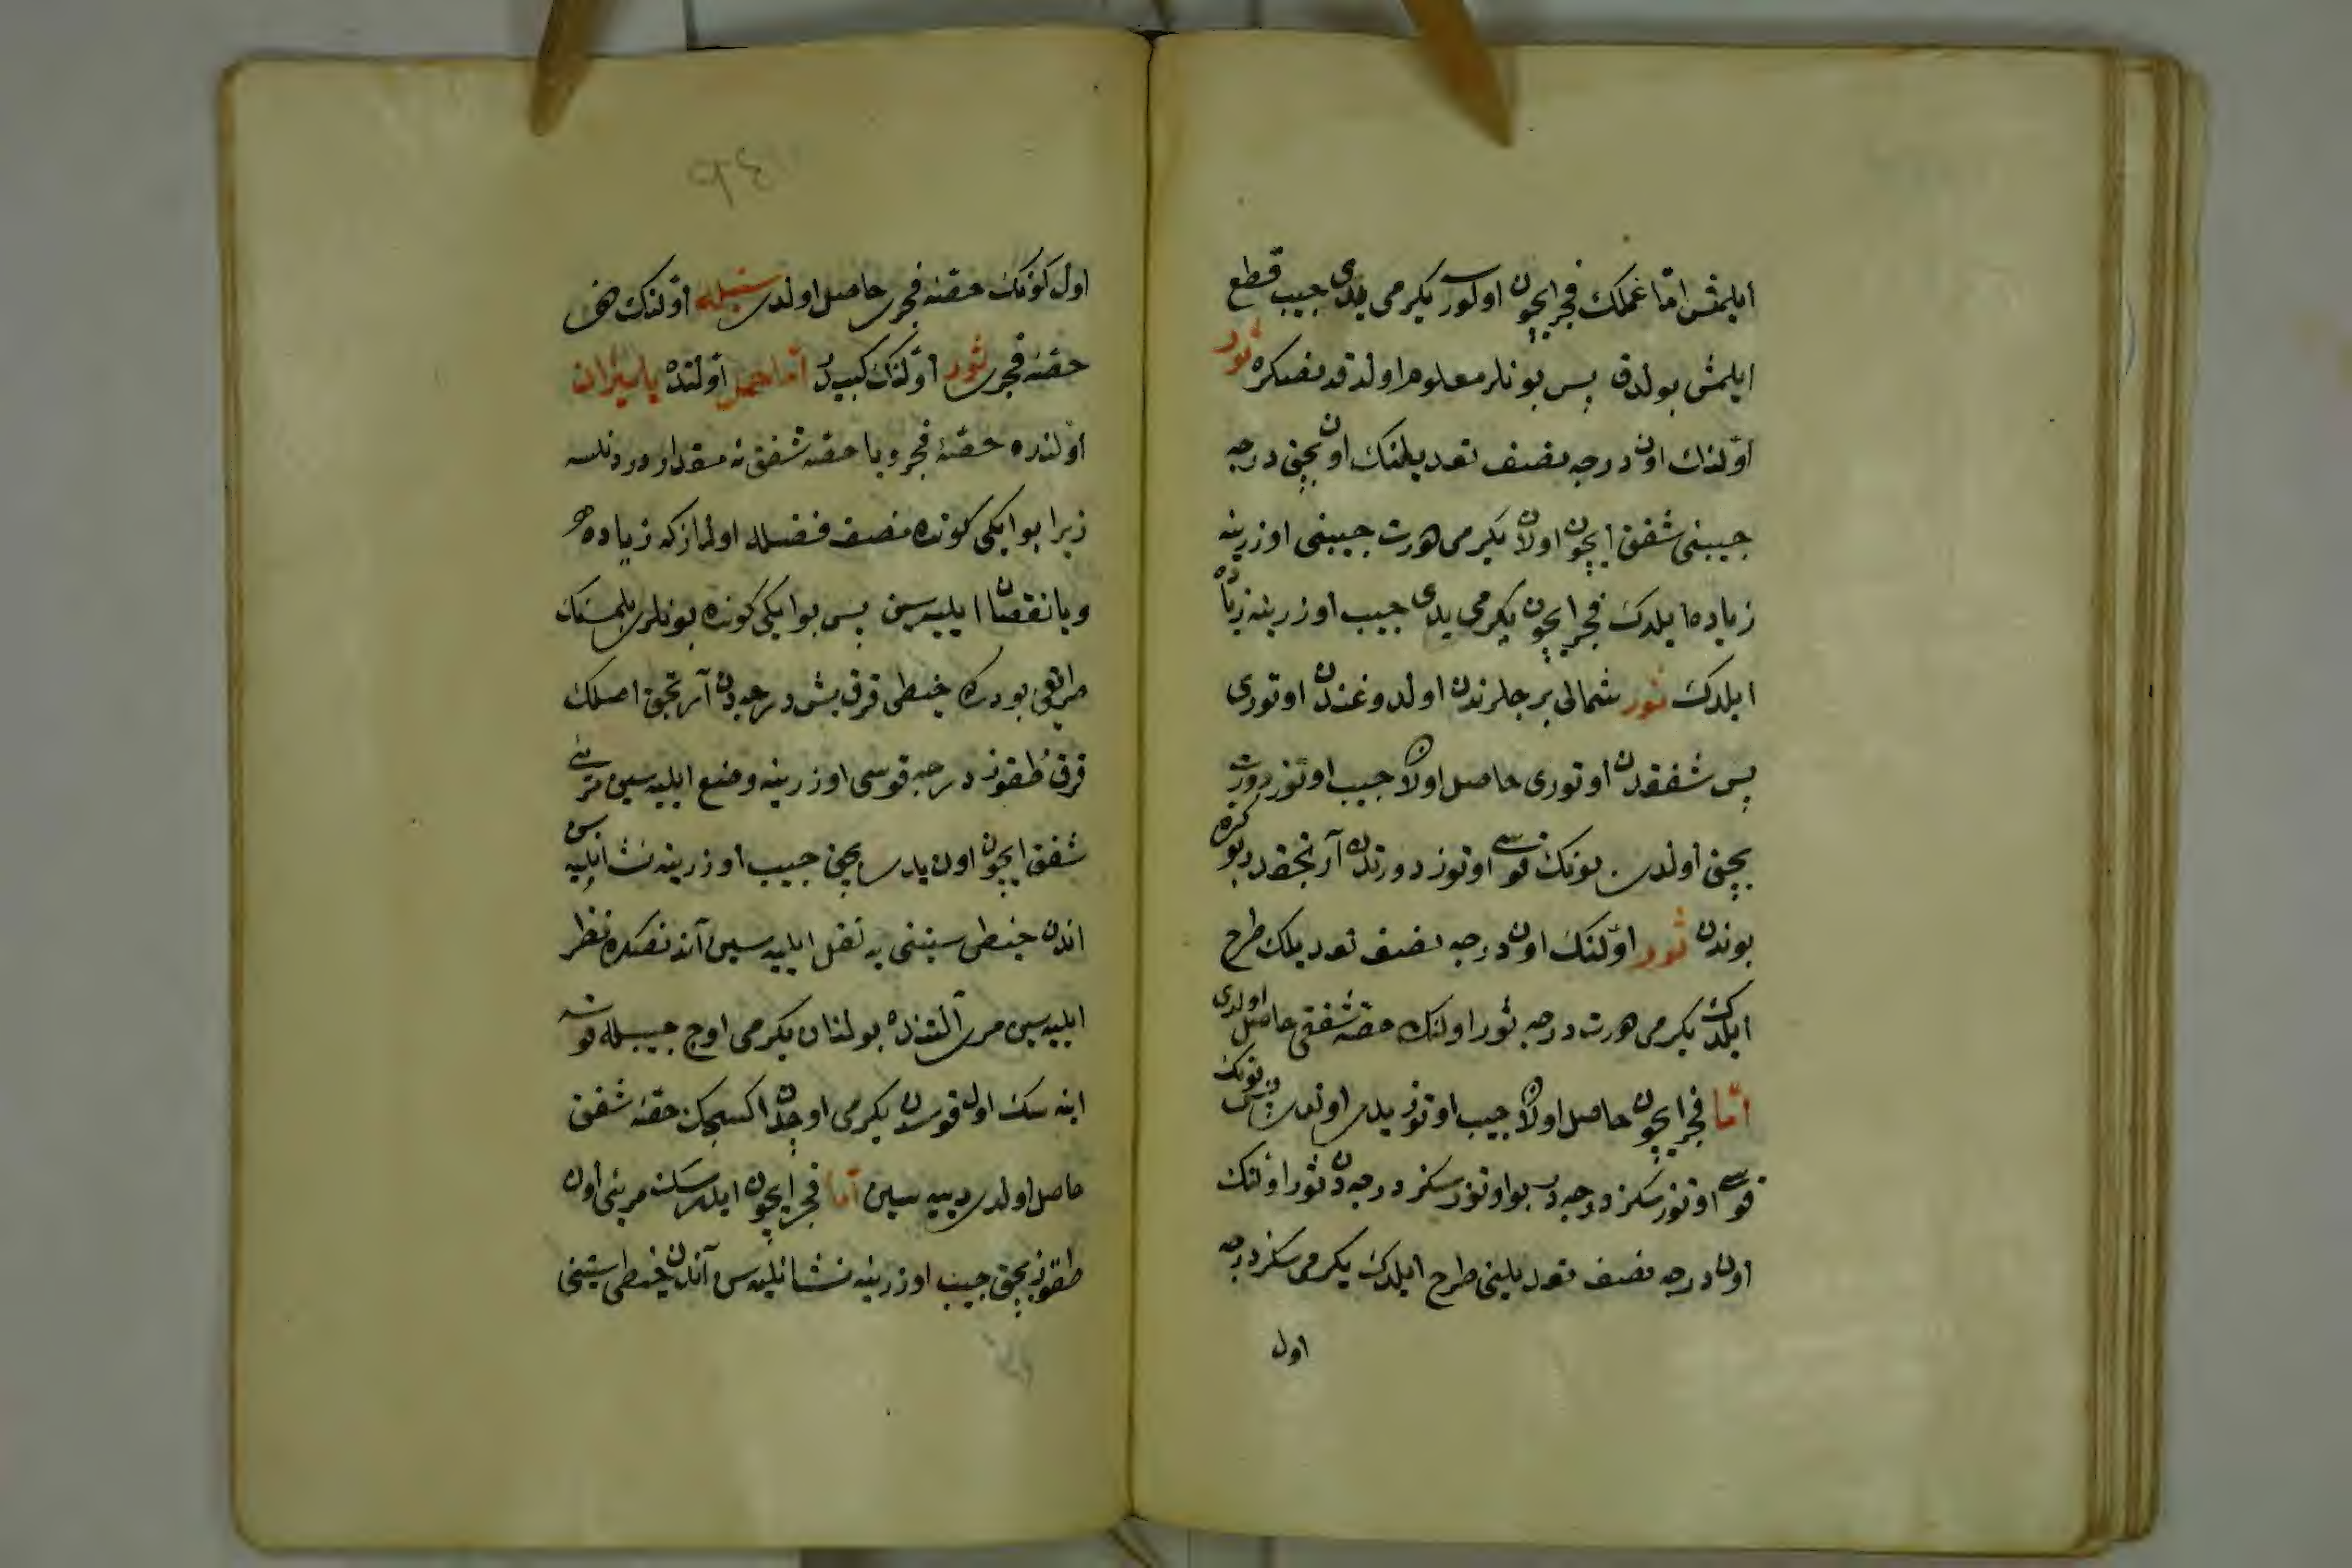 ایلمش اما عملك فجر ایچون اولور یكرمی یدی جیب قطع
ایلمش بولدق پس بونلر معلوم اولدقدنصكره ثور
اوّلنك اون درجه نصف تعدیلنك اون بچق درجه
جیبنی شفق ایچون اولان یكرمی درت جیبنی اوزرینه
زیاده ایلدك فجر ایچون یكرمی یدی جیب اوزرینه زیاده
ایلدك ثور شمالی برجلرندن اولدوغندن اوتوری
پس شفقدن اوتوری حاصل اولان جیب اوتوز درت
بچق اولدی بونك قوسی اوتوز دورتدن آرتجقدر بو كره
بوندن ثور اوّلنك اون درجه نصف تعدیلك طرح
ایلدك یكرمی درت درجه ثور اولنك حصّه شفقی حاصل اولدی
امّا فجر ایچون حاصل اولان جیب اوتوز یدی اولدی پس بونك
قوسی اوتوز سكز درجه در بو اوتوز سكز درجه دن ثور اوّلنك
اون درجه نصف تعدیلینی طرح ایلدك یكرمی سكز درجه
اول
اول كونك حصّۀ فجری حاصل اولدی سنبله اوّلنك دخی
حصّۀ فجری ثور اوّلنك كبیدر امّا حمل اوّلنده یا میزان
اوّلنده حصّۀ فجر و یا حصّه شفق نه مقدار در دنلسه
زیرا بو ایكی كونده نصف فضله اولماز كه زیاده
و یا نقصان ایلیه سین پس بو ایكی كونده بونلری بلمسنك
طریقی بودركه خیطی قرق بش درجه دن آرتجق اصلك
قرق طقوز درجه قوسی اوزرینه وضع ایلیه سین مرئی
شفق ایچون اون یدی بچق جیب اوزرینه نشانلیه سن
اندن خیطی ستینی یه نقل ایلیه سین آندنصكره نظر
ایلیه سین مری آلتنده بولنان یكرمی اوچ جیبله قوسه
اینه سك اول قوسدن یكرمی اوچدن اكسجك حصّۀ شفق
حاصل اولدی دییه سین امّا فجر ایچون ایلرسك مریئی اون
طقوز بچق جیب اوزرینه نشانلیه س آندن خیطی ستینی